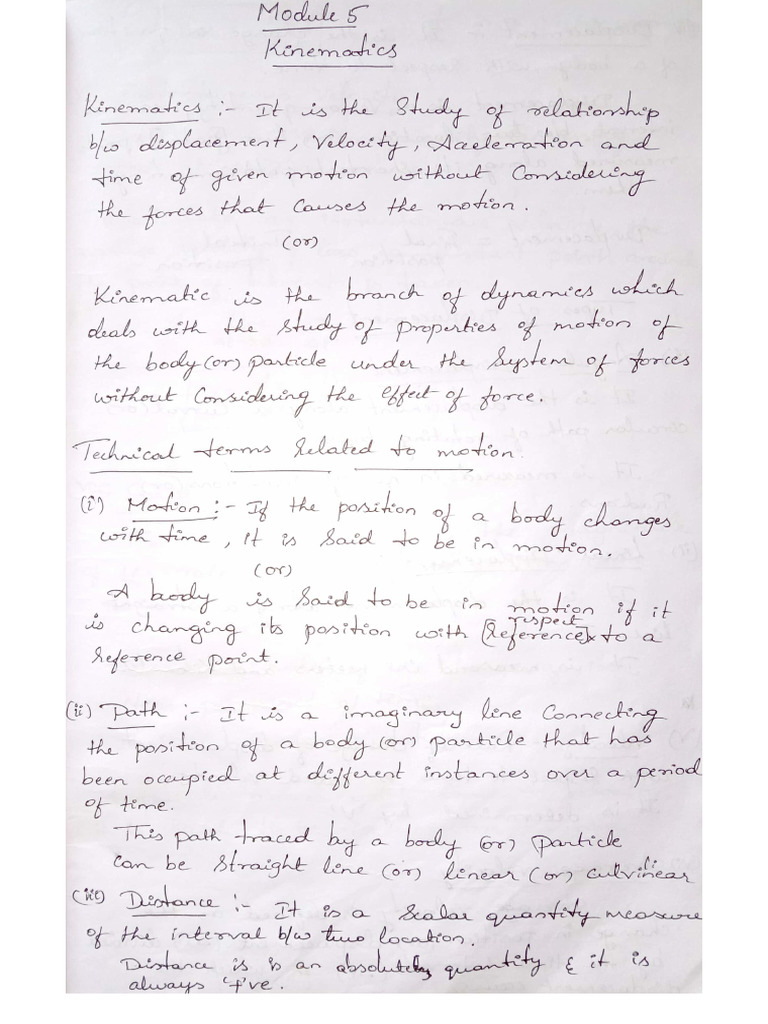 Module 5
Kinematics
Kinematics :- It is the Study of relationship
b/w displacement, Velocity, Acceleration and
time of given motion without Considering
the forces that Causes the motion.
(or)
Kinematic is the branch of dynamics which
deals with the study of properties of motion of
the body (or) particle under the System of forces
without Considering the effect of force.
Technical terms Related to motion
(i) Motion :- If the position of a body changes
with time, it is Said to be in motion.
(or)
A body is Said to be in motion if it
is changing its position with respect [Reference]x to a
Reference point.
(ii) Path :- It is a imaginary line Connecting
the position of a body (or) particle that has
been occupied at different instances over a period
of time.
This path traced by a body (or) particle
Can be Straight line (or) linear (or)
(iii) Distance :- It is a Scalar quantity measure
of the interval b/w two location.
Distance is is an absolutely quantity & it is
always '+'ve.